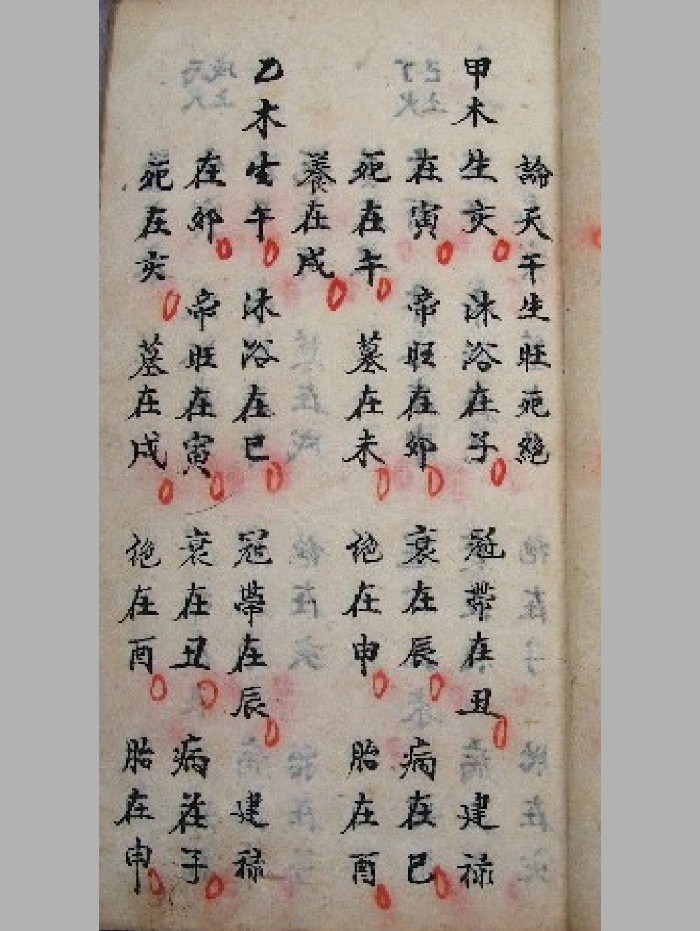 論天干生旺死絕
甲木生亥 沐浴在子 冠帶在丑 建祿
在寅 帝旺在卯 衰在辰 病在巳
死在午 墓在未 絕在申 胎在酉
養在戌
乙木生午 沐浴在巳 冠帶在辰 建祿
在卯 帝旺在寅 衰在丑 病在子
死在亥 墓在戌 絕在酉 胎在申